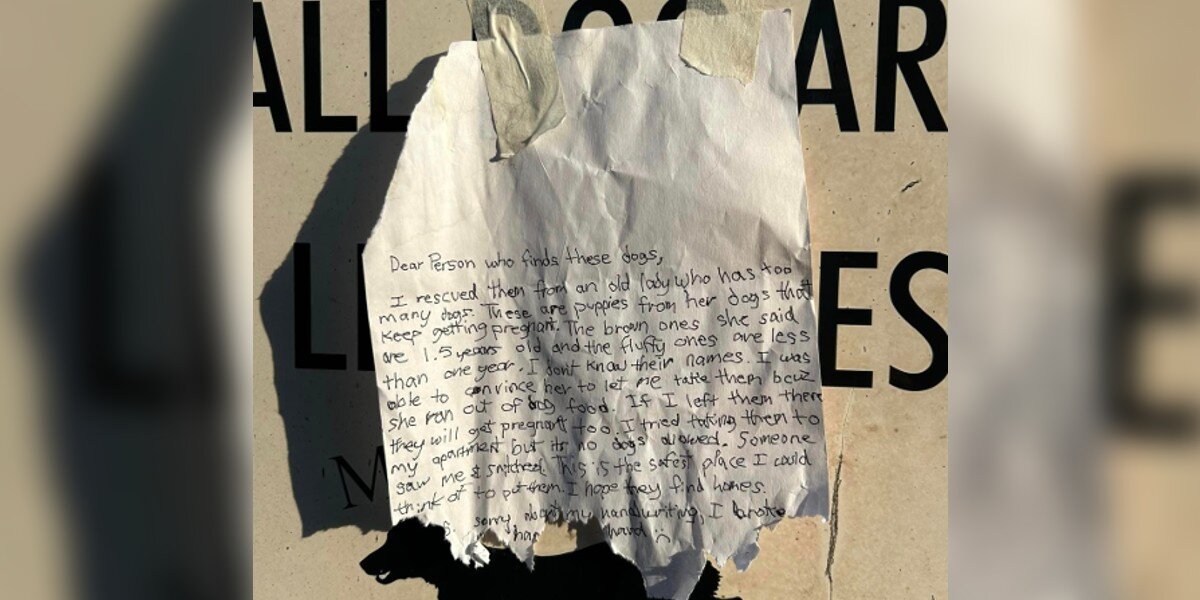 ALL DOGS AR
Dear Person who finds these dogs,
I rescued them from an old lady who has too
many dogs. These are puppies from her dogs that
keep getting pregnant. The brown ones she said
are 1.5 years old and the fluffy ones are less
than one year. I don't know their names. I was
able to convince her to let me take them bcuz
she ran out of dog food. If I left them there
they will get pregnant too. I tried taking them to
my apartment but its no dogs allowed. Someone
saw me & snitched. This is the safest place I could
think of to put them. I hope they find homes.
S. sorry about my handwriting, I broke
my hand :(
LE ES
M